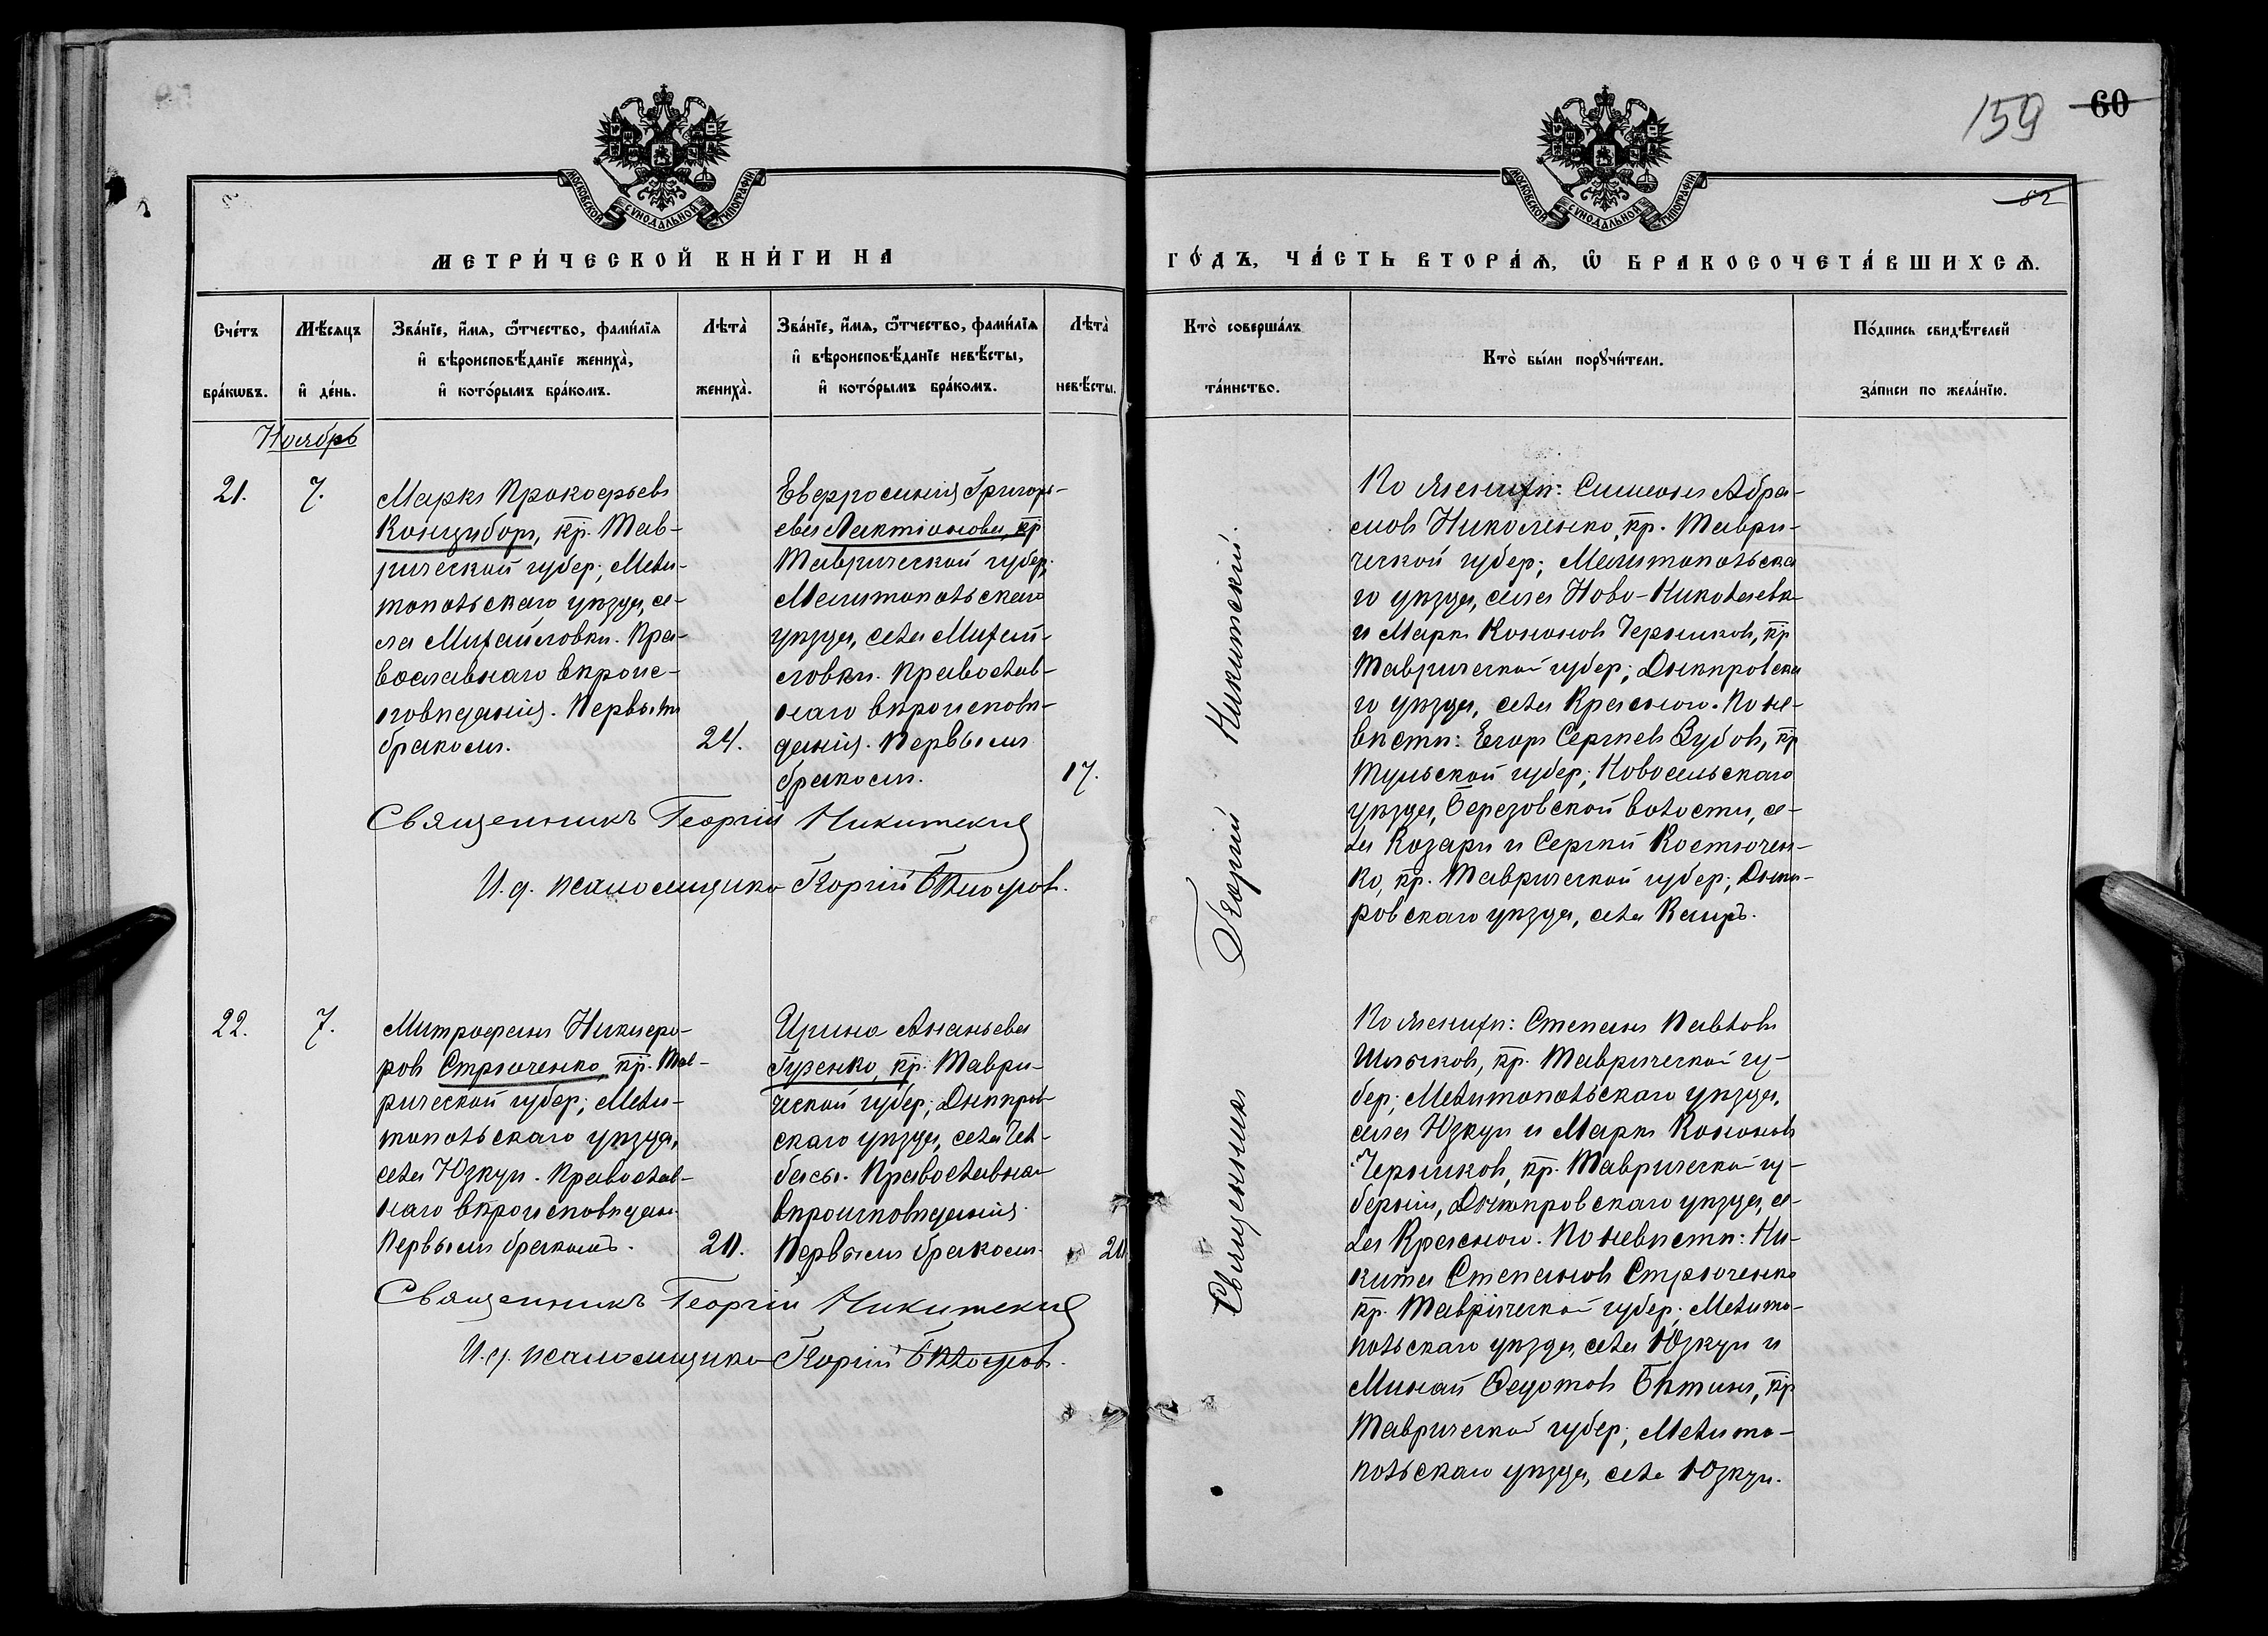 159 60
82
МОСКОВСКОЙ СѴНОДАЛЬНОЙ ТИПОГРАФІИ
МОСКОВСКОЙ СѴНОДАЛЬНОЙ ТИПОГРАФІИ
МЕТРИ́ЧЕСКОЙ КНИ́ГИ НА
ГО́ДЪ, ЧА́СТЬ ВТОРА́Ѧ, Ѡ҆ БРАКОСОЧЕТА́ВШИХСѦ.
Сче́тъ
бра́кѡвъ.
Мѣ́сяцъ
и҆ де́нь.
Зва́нїе, и҆́мѧ, ѻ҆́тчество, фами́лїѧ
и҆ вѣроисповѣ́данїе жениха̀,
и҆ кото́рымъ бра́комъ.
Лѣта̀
жениха̀.
Зва́нїе, и҆́мѧ, ѻ҆́тчество, фами́лїѧ
и҆ вѣроисповѣ́данїе невѣ́сты,
и҆ кото́рымъ бра́комъ.
Лѣта̀
невѣ́сты.
Кто̀ соверша́лъ
та́инство.
Кто̀ бы́ли порꙋчи́тели.
По́дпись свидѣ́телей
за́писи по жела́нїю.
Ноябрь
21.
7.
Маркъ Прокофьевъ
Концыборъ, кр. Тав-
рической губер; Мели-
топольскаго уѣзда, се-
ла Михайловки. Пра-
вославнаго вѣроис-
повѣданія. Первымъ
бракомъ.
24.
Евфросинія Григорь-
ева Лактіонова, кр.
Таврической губер;
Мелитопольскаго
уѣзда, села Михай-
ловки. Православ-
наго вѣроисповѣ-
данія. Первымъ
бракомъ.
17.
Священникъ Георгій Никитскій
И. д. псаломщика Георгій
Священникъ Георгій Никитскій
По женихѣ: Симеонъ Абра-
мовъ Николенко, кр. Таври-
ческой губер; Мелитопольска
го уѣзда, села Ново-Николаевки
и Маркъ Кононовъ Черниковъ, кр
Таврической губер; Днѣпровска
го уѣзда, села Краснаго. По не-
вѣстѣ: Егоръ Сергѣевъ Зубовъ, кр
Тульской губер; Новосельскаго
уѣзда, Березовской волости, се-
ла Козари и Сергѣй Костючен-
ко, кр. Таврической губер; Днѣп-
ровскаго уѣзда, села Каиръ.
22.
7.
Митрофанъ Никифо-
ровъ Стрюченко, кр. Тав-
рической губер; Мели-
топольскаго уѣзда,
села Юзкуи. Православ-
наго вѣроисповѣдан.
Первымъ бракомъ.
20.
Ирина Ананьева
Гузенко, кр. Таври-
ческой губер; Днѣпров-
скаго уѣзда, села Чел-
басы. Православнаго
вѣроисповѣданія.
Первымъ бракомъ.
20
Священникъ Георгій Никитскій
И. д. псаломщика Георгій
По женихѣ: Степанъ Павловъ
Шлыковъ, кр. Таврической гу-
бер; Мелитопольскаго уѣзда,
села Юзкуи и Маркъ Кононовъ
Черниковъ, кр. Таврической гу-
берніи, Днѣпровскаго уѣзда, се-
ла Краснаго. По невѣстѣ: Ни-
кита Степановъ Стрюченко
кр. Таврической губер; Мелито-
польскаго уѣзда, села Юзкуи и
Минай Ѳедотовъ Бѣтинъ, кр
Таврической губер; Мелито-
польскаго уѣзда, села Юзкуи.